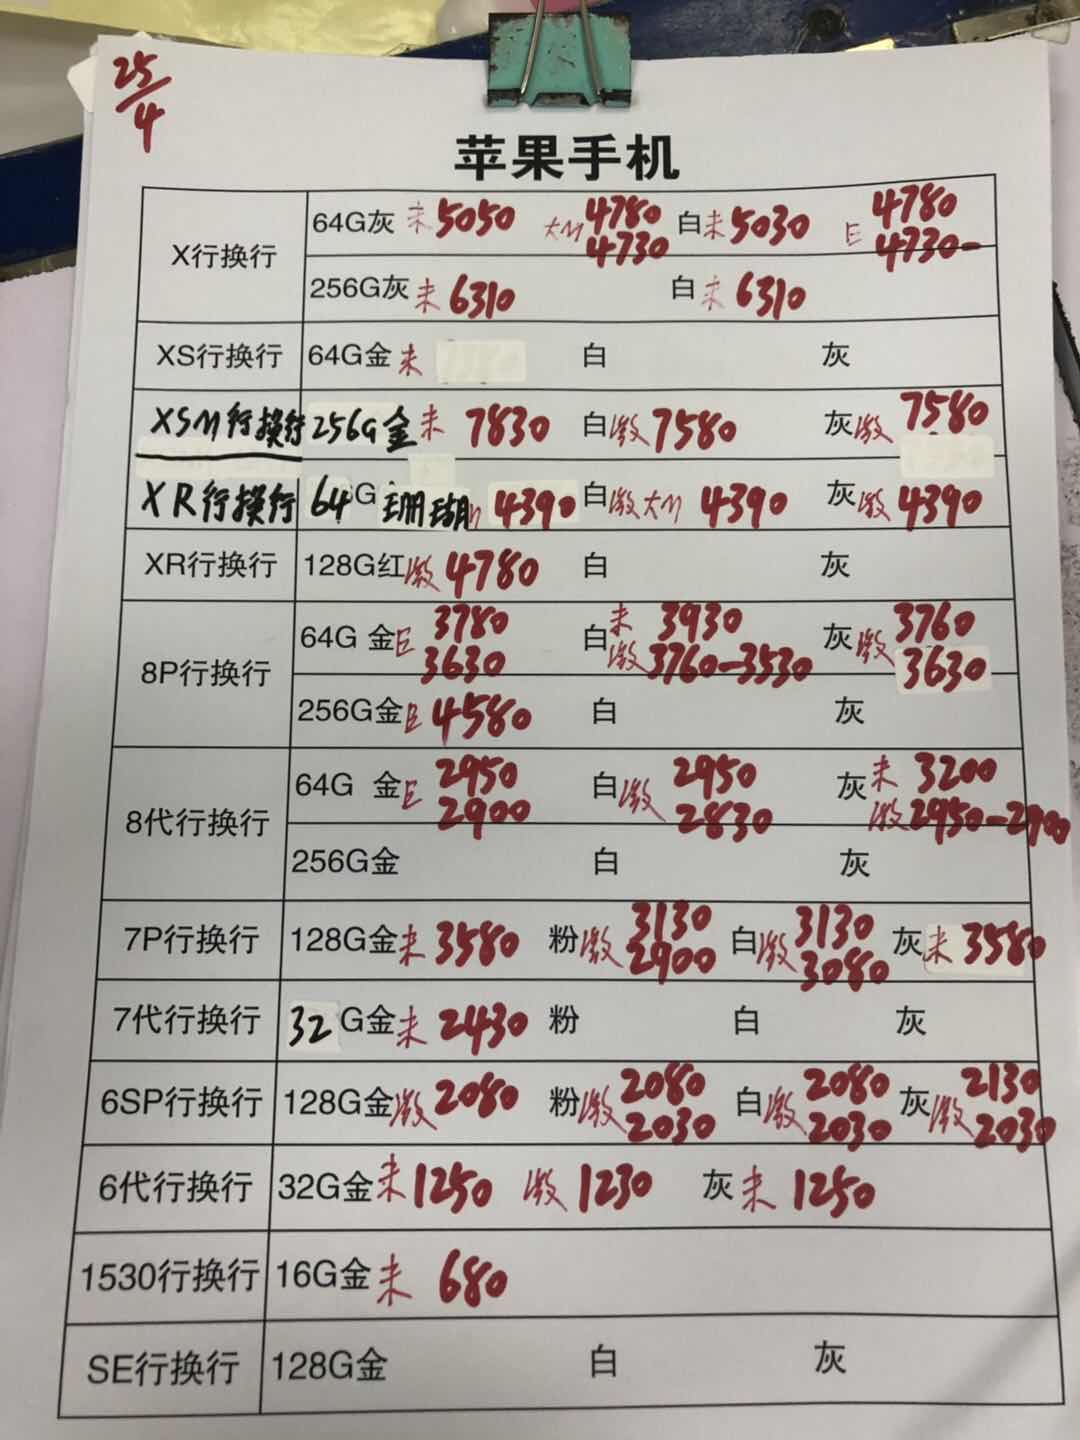 25/4
苹果手机
X行换行 64G灰 未 5050 大M 4780 4730 白 未 5030 E 4780 4730-
256G灰 未 6310 白 未 6310
XS行换行 64G金 未 白 灰
XSM行换行 256G金 未 7830 白 激 7580 灰 激 7580
XR行换行 64G 珊瑚 4390 白 激 大M 4390 灰 激 4390
XR行换行 128G红 激 4780 白 灰
8P行换行 64G 金 E 3780 3630 白 未 3930 激 3760-3530 灰 激 3760 3630
256G金 E 4580 白 灰
8代行换行 64G 金 E 2950 2900 白 激 2950 2830 灰 未 3200 激 2950-2900
256G金 白 灰
7P行换行 128G金 未 3580 粉 激 3130 2900 白 激 3130 3080 灰 未 3580
7代行换行 32G金 未 2430 粉 白 灰
6SP行换行 128G金 激 2080 粉 激 2080 2030 白 激 2080 2030 灰 激 2130 2030
6代行换行 32G金 未 1250 激 1230 灰 未 1250
1530行换行 16G金 未 680
SE行换行 128G金 白 灰